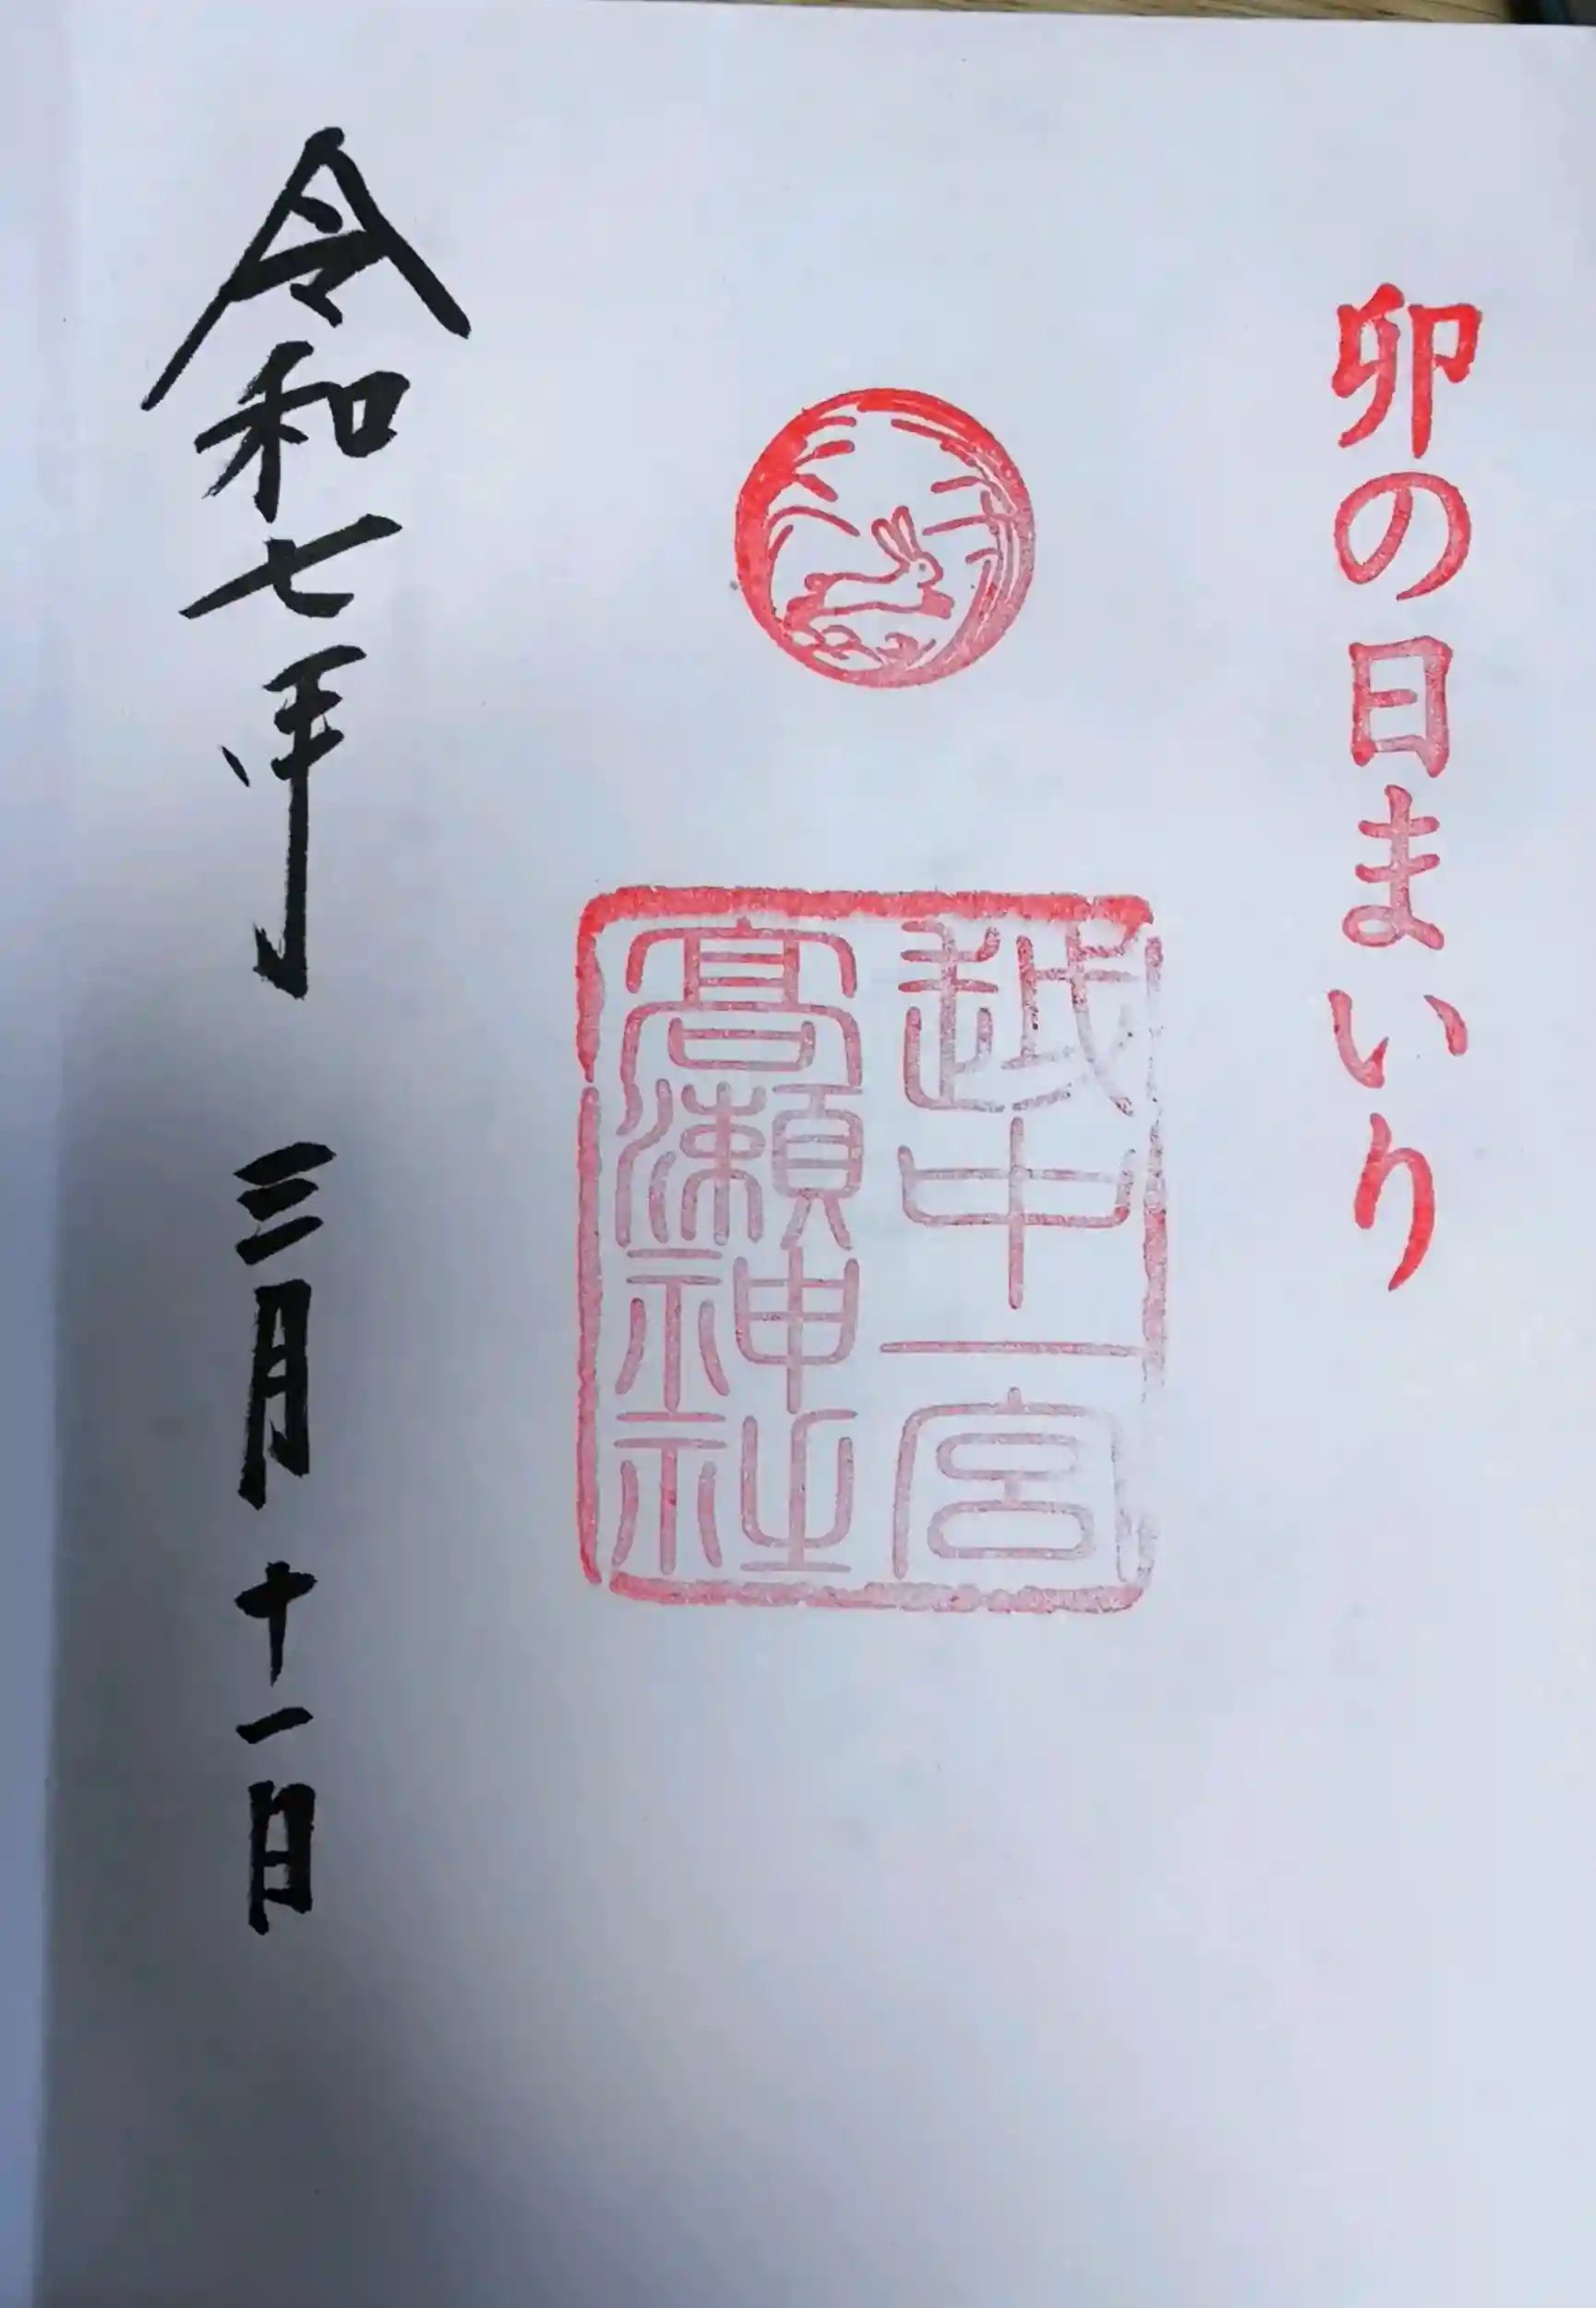 卯の日まいり
越中一宮
高瀬神社
令和七年 三月 十一日